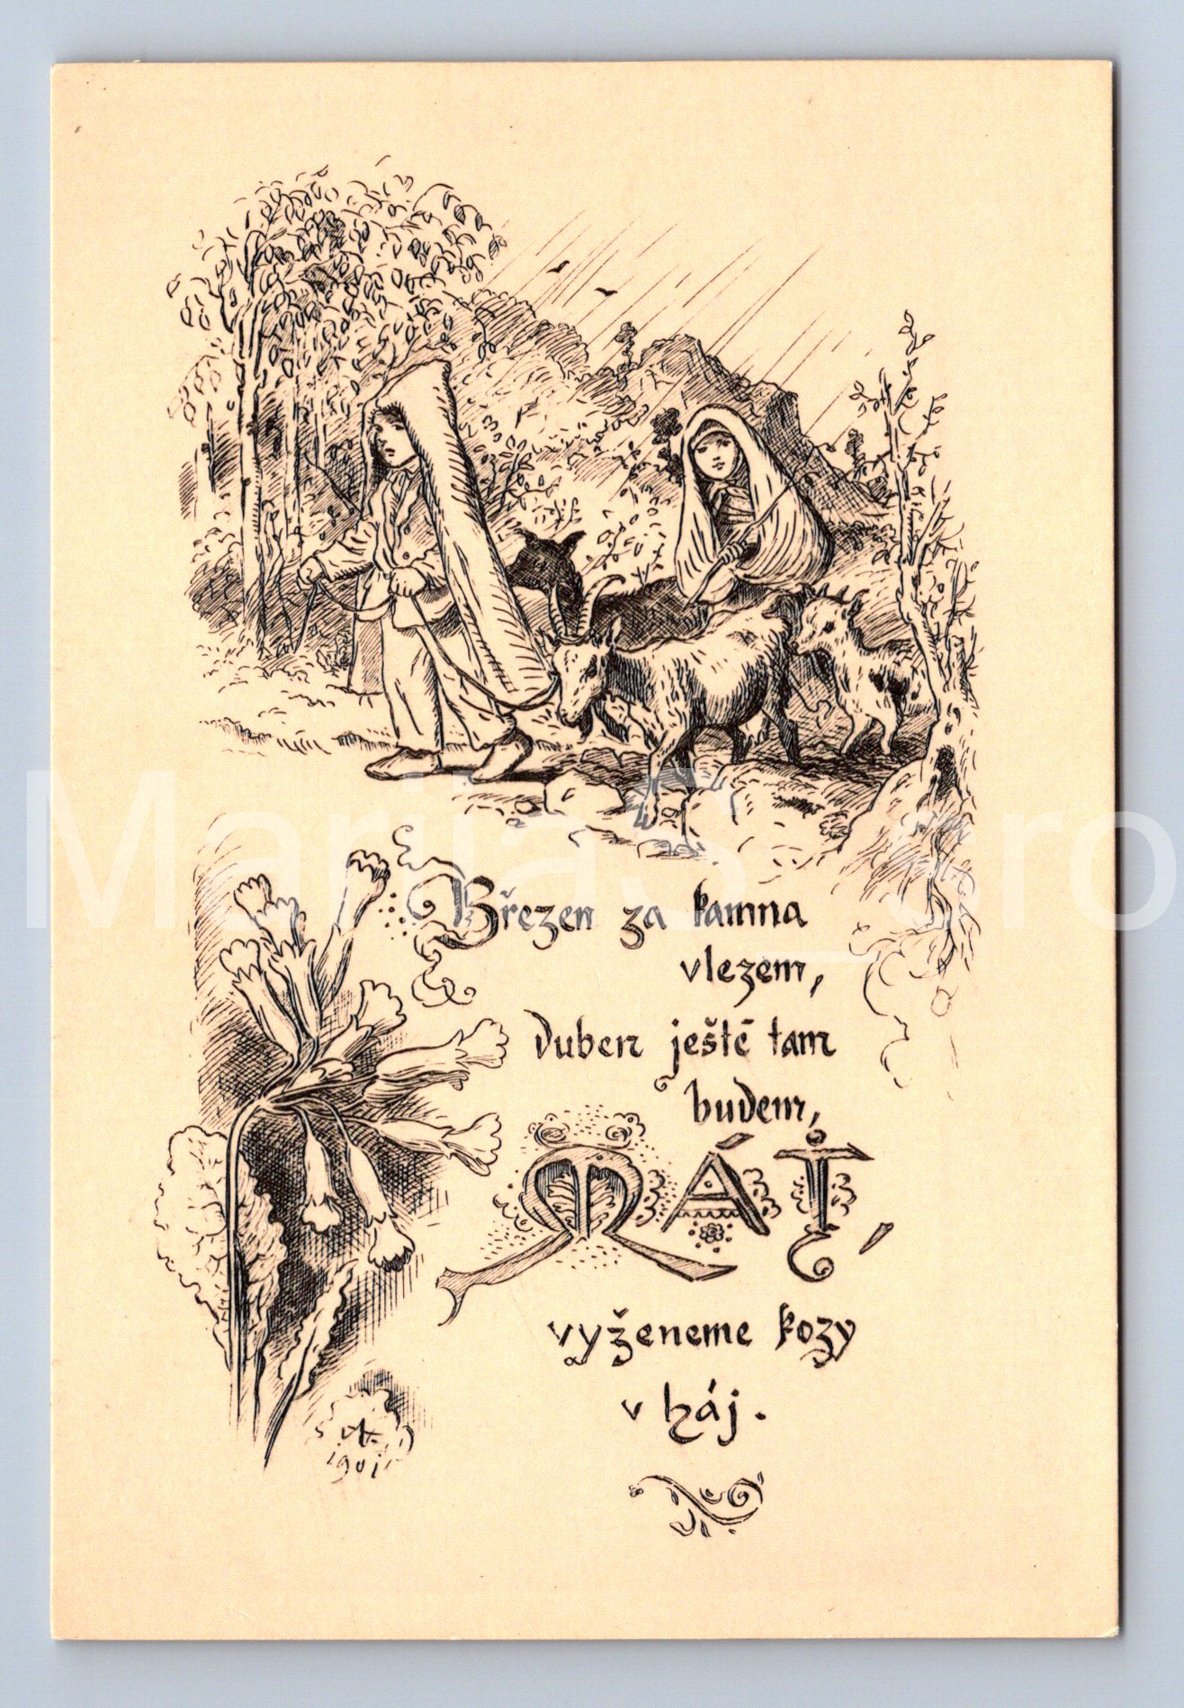 Březen za kamna
vlezem,
Duben ještě tam
budem,
MÁJ,
vyženeme kozy
v háj.
1901